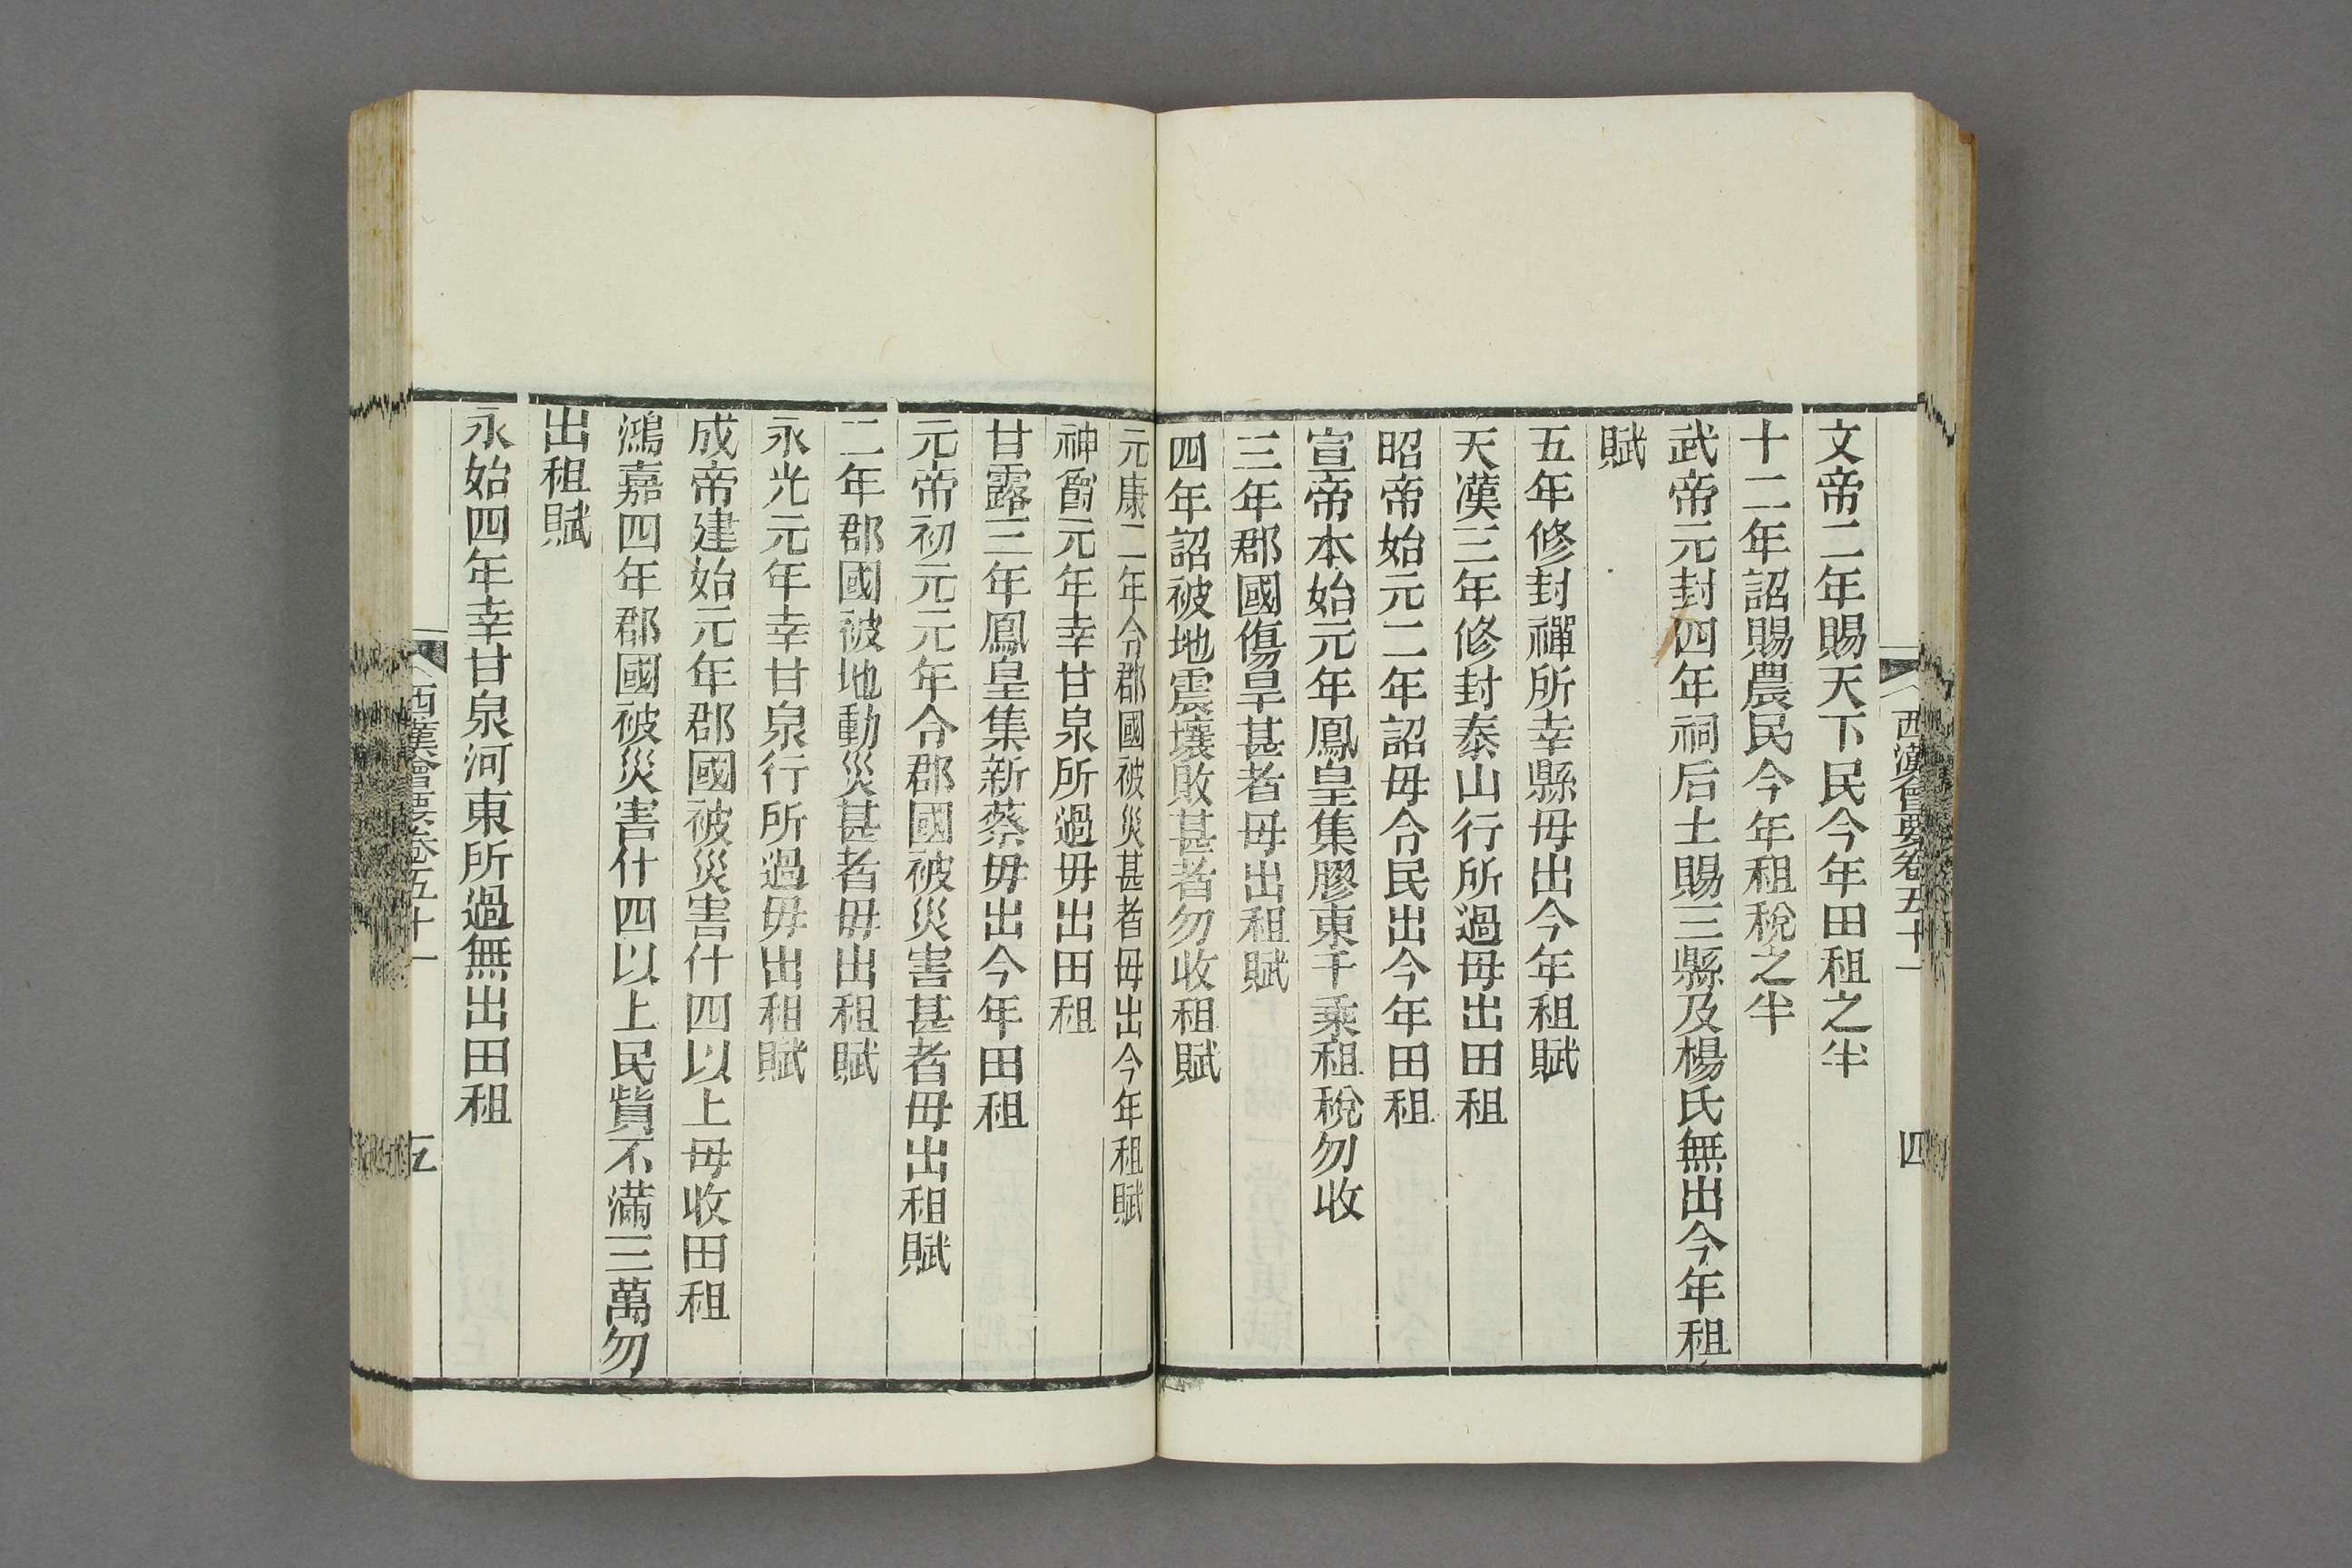 西漢會要卷五十一
四
文帝二年賜天下民今年田租之半
十二年詔賜農民今年租稅之半
武帝元封四年祠后土賜三縣及楊氏無出今年租
賦
五年修封禪所幸縣毋出今年租賦
天漢三年修封泰山行所過毋出田租
昭帝始元二年詔毋令民出今年田租
宣帝本始元年鳳皇集膠東千乘租稅勿收
三年郡國傷旱甚者毋出租賦
四年詔被地震壞敗甚者勿收租賦
元康二年令郡國被災甚者毋出今年租賦
神爵元年幸甘泉所過毋出田租
甘露三年鳳皇集新蔡毋出今年田租
元帝初元元年令郡國被災害甚者毋出租賦
二年郡國被地動災甚者毋出租賦
永光元年幸甘泉行所過毋出租賦
成帝建始元年郡國被災害什四以上毋收田租
鴻嘉四年郡國被災害什四以上民貲不滿三萬勿
出租賦
永始四年幸甘泉河東所過無出田租
西漢會要卷五十一
五